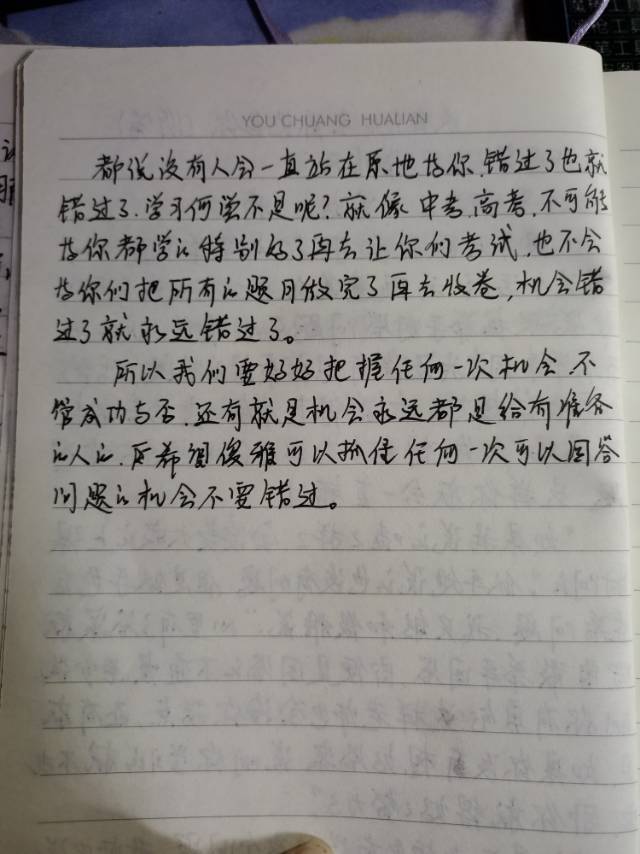 YOU CHUANG HUALIAN
都说没有人会一直站在原地等你,错过了也就
错过了.学习何尝不是呢?就像中考,高考,不可能
等你都学的特别好了再去让你们考试,也不会
等你们把所有的题目做完了再去收卷,机会错
过了就永远错过了。
所以我们要好好把握任何一次机会,不
管成功与否.还有就是机会永远都是给有准备
的人的,俊雅可以抓住任何一次可以回答
问题的机会不要错过。